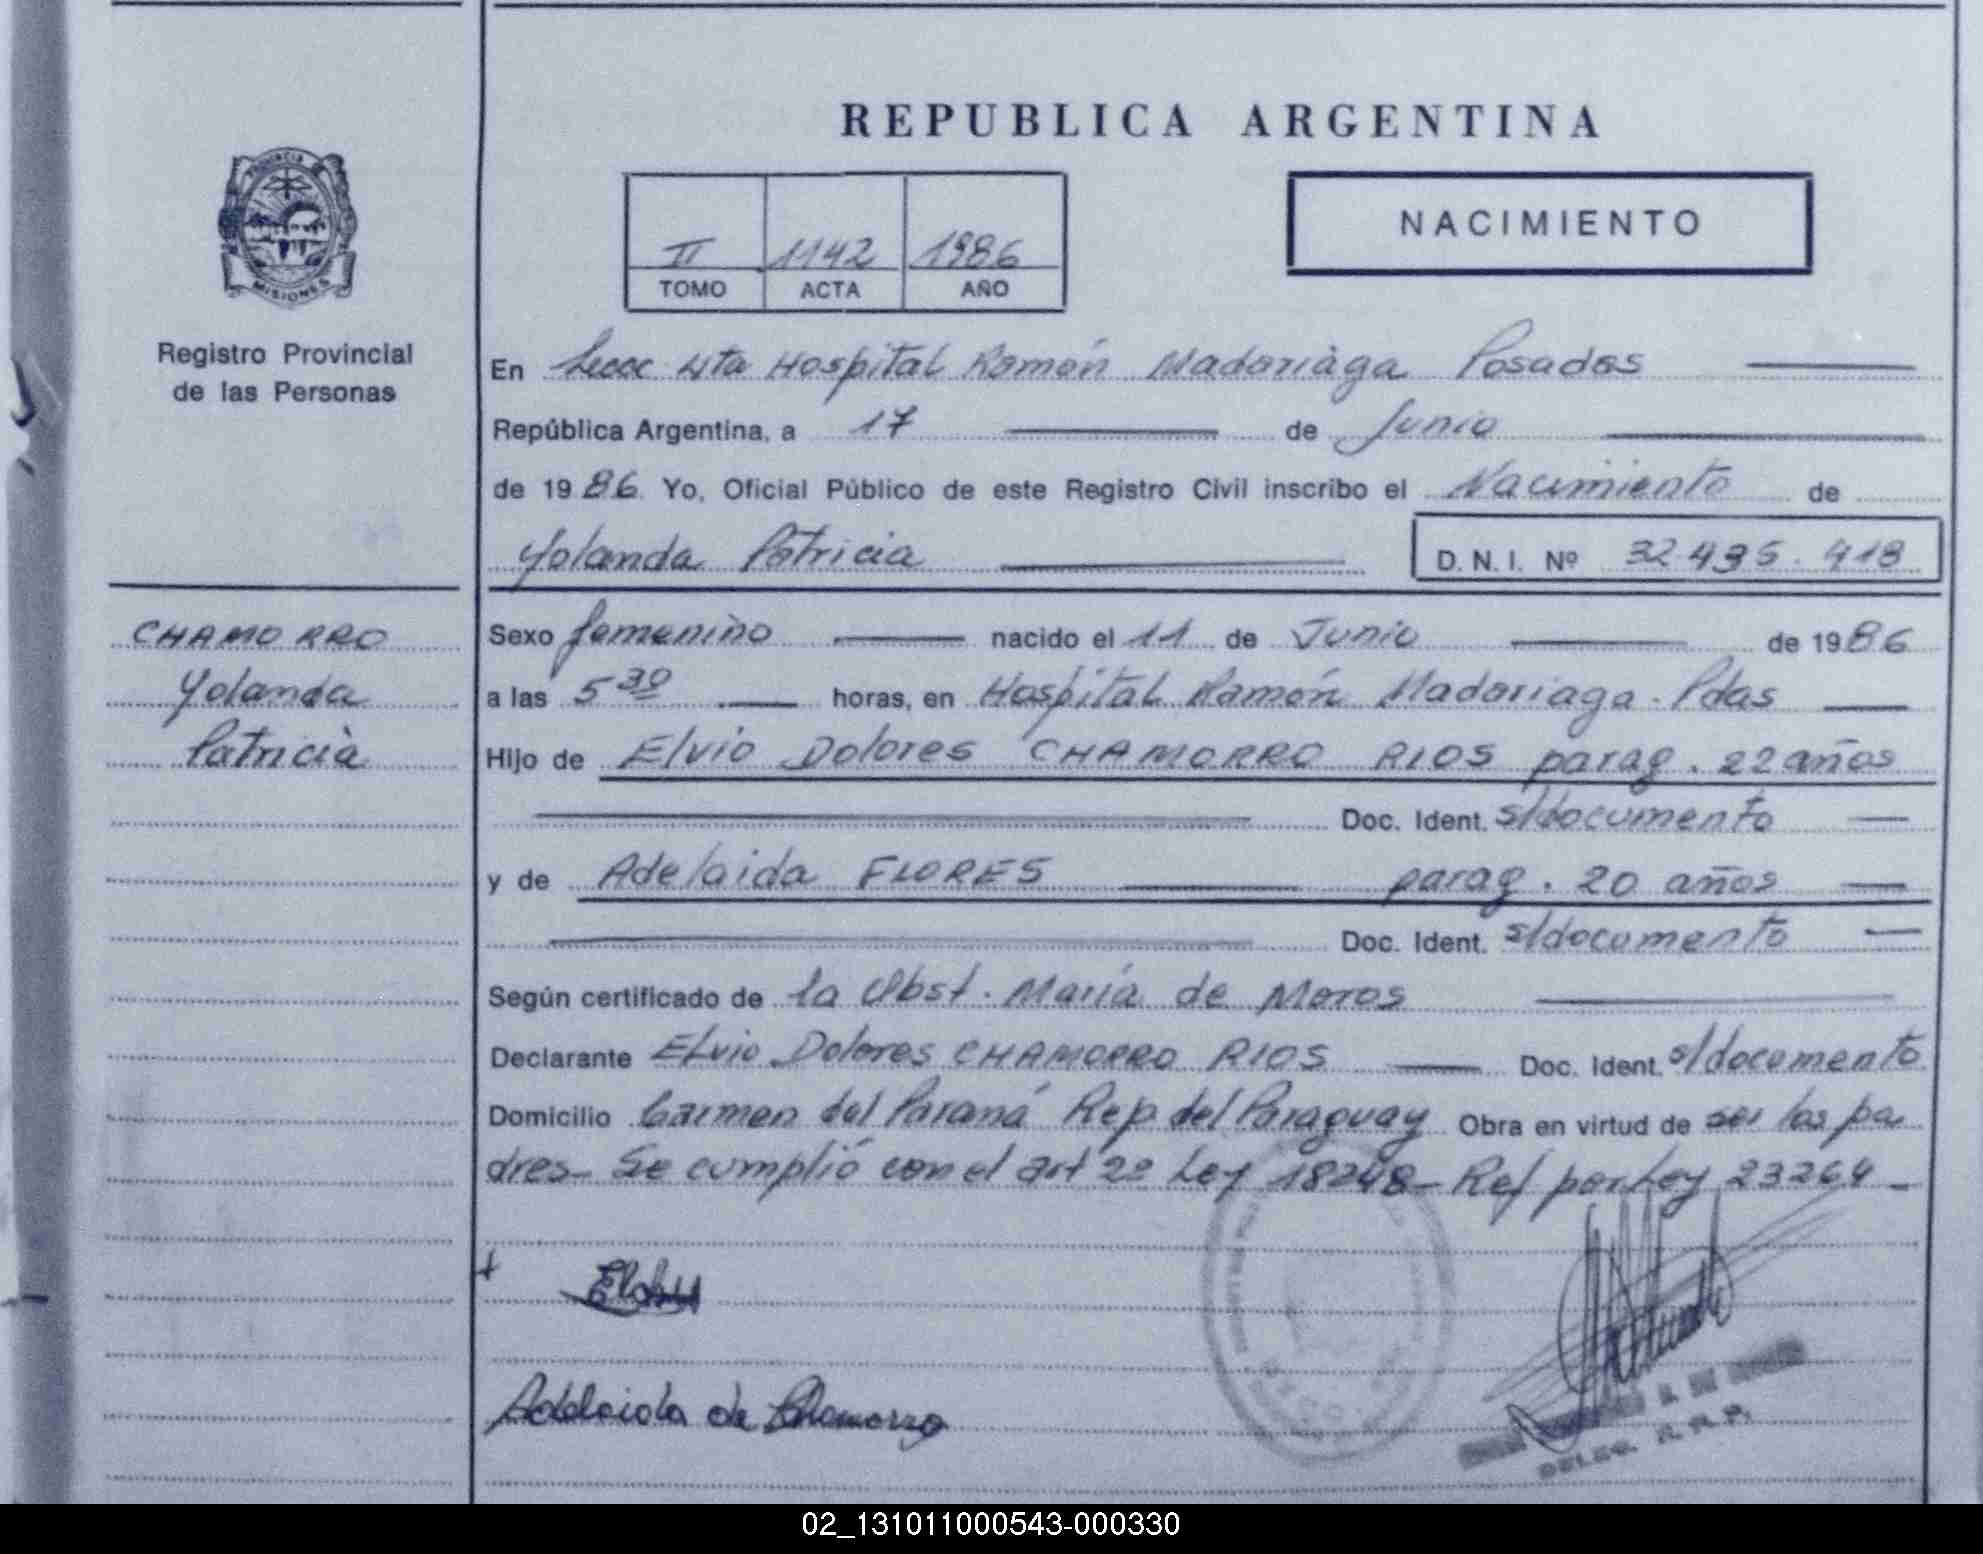 REPUBLICA ARGENTINA
PROVINCIA
MISIONES
Registro Provincial
de las Personas
II 1142 1986
TOMO ACTA AÑO
NACIMIENTO
En Secc 4ta Hospital Ramón Madariaga Posadas
República Argentina, a 17 de Junio
de 1986 Yo, Oficial Público de este Registro Civil inscribo el Nacimiento de
Yolanda Patricia D. N. I. Nº 32.435.418
CHAMORRO
Yolanda
Patricia
Sexo femenino nacido el 11 de Junio de 1986
a las 5 30 horas, en Hospital Ramón Madariaga - Pdas
Hijo de Elvio Dolores CHAMORRO RIOS parag. 22 años
Doc. Ident. s/documento
y de Adelaida FLORES parag. 20 años
Doc. Ident. s/documento
Según certificado de la Obst. María de Moros
Declarante Elvio Dolores CHAMORRO RIOS Doc. Ident. s/documento
Domicilio Carmen del Paraná Rep. del Paraguay Obra en virtud de ser los pa
dres - Se cumplió con el art 2º Ley 18248 - Ref por Ley 23264 -
Adelaida de Chamorro
DELEG. R. P. P.
02_131011000543-000330